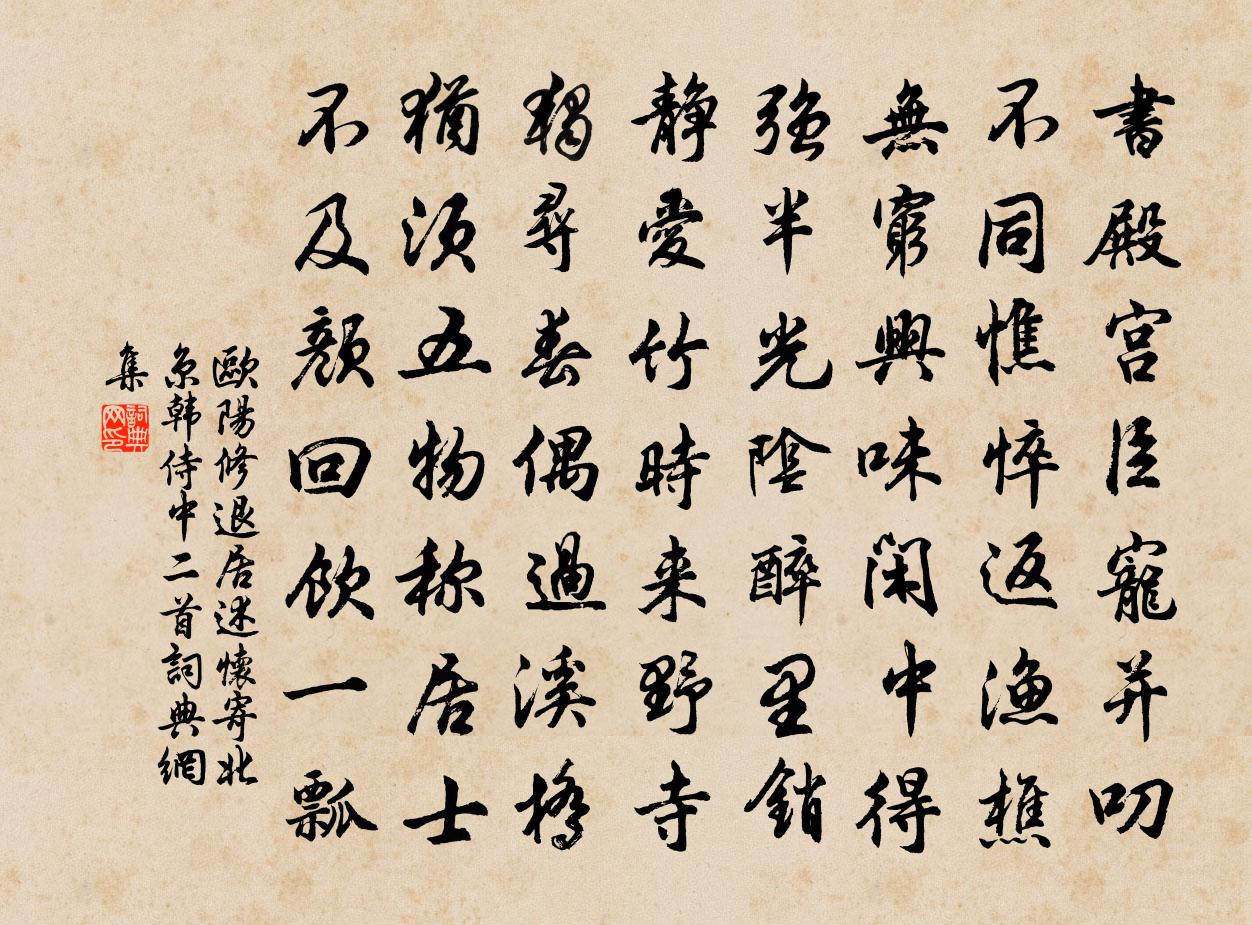 書殿宫臣寵并叨
不同憔悴返漁樵
無窮興味閑中得
强半光陰醉里銷
静愛竹時来野寺
獨尋春偶過溪橋
猶須五物稱居士
不及顔回飲一瓢
歐陽修退居述懷寄北
京韓侍中二首詞典網
集
詞典网印